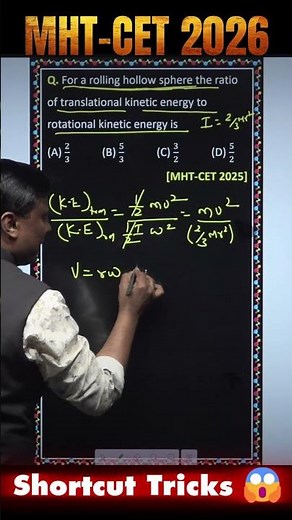 MHT-CET 2026
Q. For a rolling hollow sphere the ratio
of translational kinetic energy to
rotational kinetic energy is I = 2/3 Mr²
(A) 2/3 (B) 5/3 (C) 3/2 (D) 5/2
[MHT-CET 2025]
(K·E) = 1/2 mv² = mv²
(K·E) 1/2 I ω² (2/3 Mr²)
V = rω
Shortcut Tricks 😱